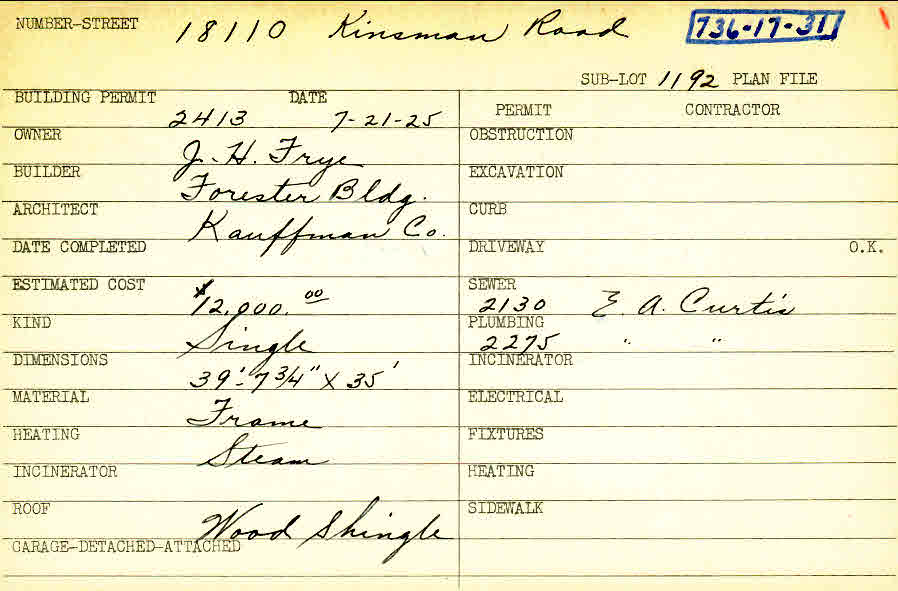 NUMBER-STREET 18110 Kinsman Road 736-17-31
SUB-LOT 1192 PLAN FILE
BUILDING PERMIT DATE
2413 7-21-25
PERMIT CONTRACTOR
OWNER J. H. Frye
OBSTRUCTION
BUILDER Forester Bldg.
EXCAVATION
ARCHITECT Kauffman Co.
CURB
DATE COMPLETED
DRIVEWAY O.K.
ESTIMATED COST $12,000.00
SEWER
2130 E. A. Curtis
KIND Single
PLUMBING
2275 " "
DIMENSIONS 39'-7 3/4" X 35'
INCINERATOR
MATERIAL Frame
ELECTRICAL
HEATING Steam
FIXTURES
INCINERATOR
HEATING
ROOF Wood Shingle
SIDEWALK
GARAGE-DETACHED-ATTACHED